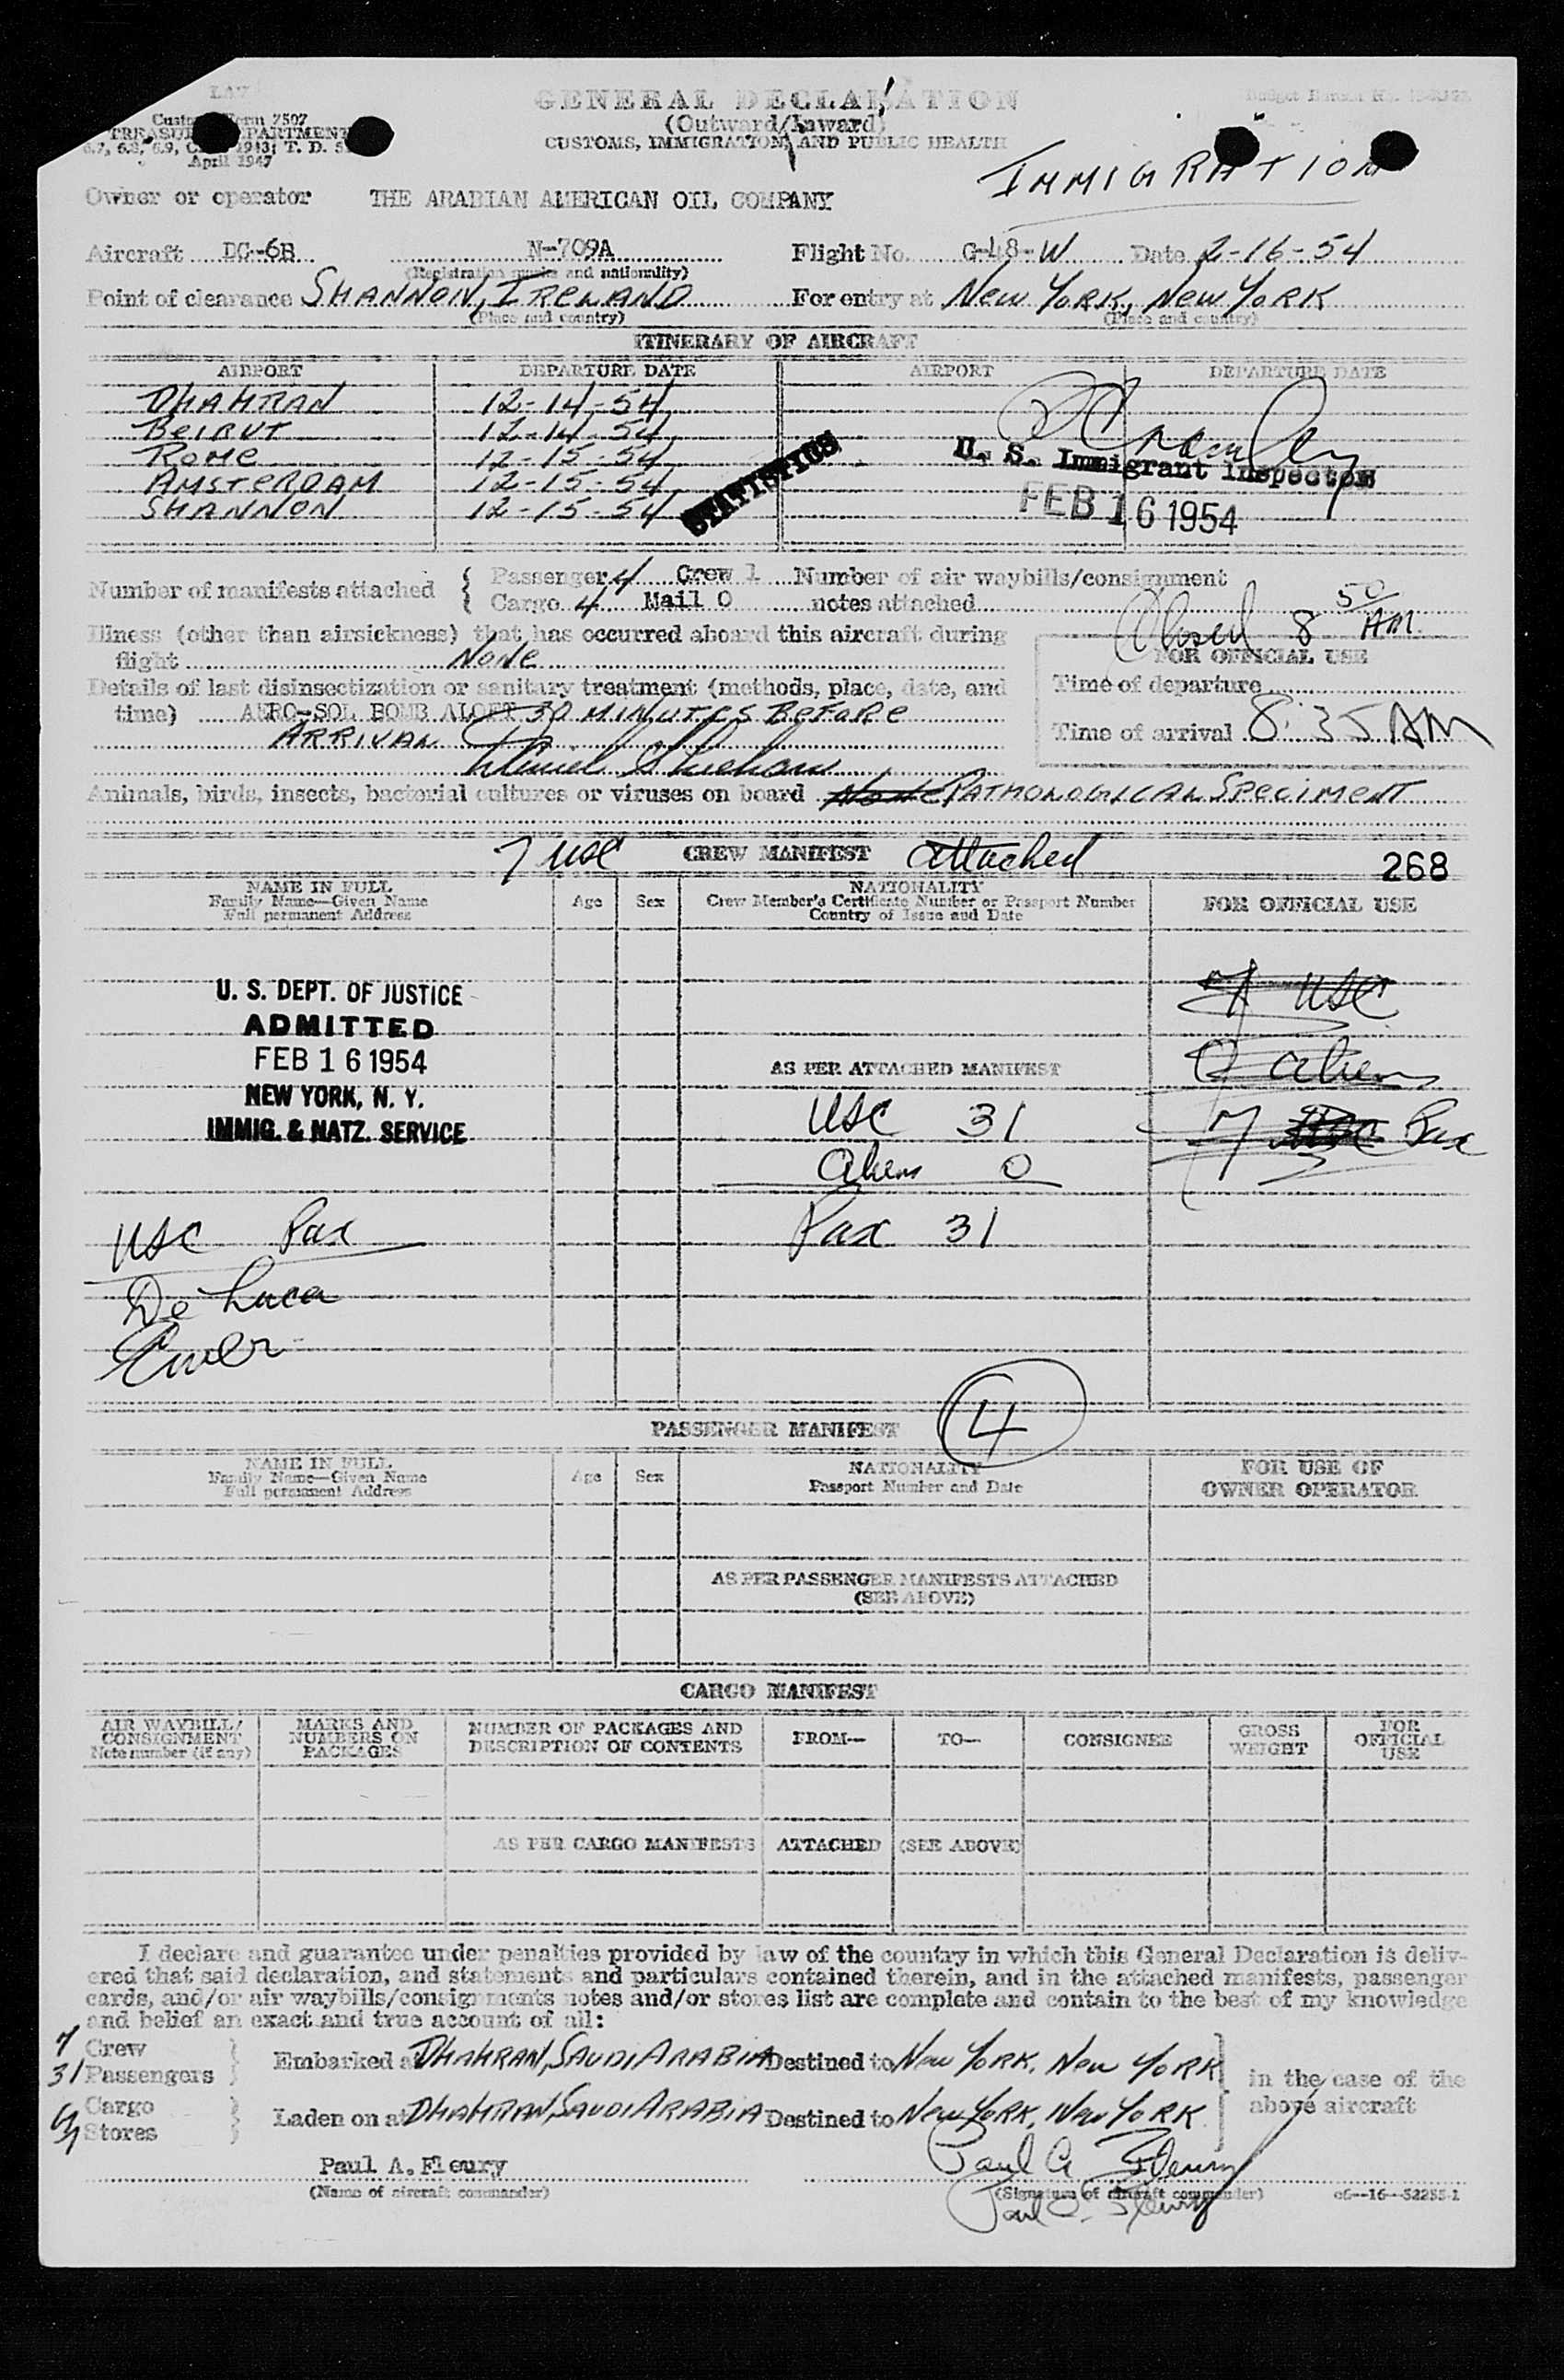 GENERAL DECLARATION
(Outward/Inward)
CUSTOMS, IMMIGRATION, AND PUBLIC HEALTH
Customs Form 7507
TREASURY DEPARTMENT
April 1947
IMMIGRATION
Owner or operator THE ARABIAN AMERICAN OIL COMPANY
Aircraft DC-6B N-709A Flight No. G-48-W Date 2-16-54
(Registration marks and nationality)
Point of clearance SHANNON, IRELAND For entry at NEW YORK, NEW YORK
(Place and country) (Place and country)
ITINERARY OF AIRCRAFT
AIRPORT DEPARTURE DATE AIRPORT DEPARTURE DATE
DHAHRAN 12-14-54
BEIRUT 12-14-54
ROME 12-15-54
AMSTERDAM 12-15-54
SHANNON 12-15-54
STATISTICS
U. S. Immigrant Inspector
FEB 16 1954
Number of manifests attached { Passenger 4 Crew 1 Number of air waybills/consignment
Cargo 4 Mail 0 notes attached
Closed 8 50 AM
Illness (other than airsickness) that has occurred aboard this aircraft during
flight NONE
FOR OFFICIAL USE
Details of last disinsectization or sanitary treatment (methods, place, date, and
time) AERO-SOL BOMB ALOFT 30 MINUTES BEFORE
ARRIVAL
Time of departure
Time of arrival 8:35 AM
Animals, birds, insects, bacterial cultures or viruses on board NONE PATHOLOGICAL SPECIMENT
7 USC CREW MANIFEST attached 268
NAME IN FULL
Family Name—Given Name
Full permanent Address
Age Sex
NATIONALITY
Crew Member's Certificate Number or Passport Number
Country of Issue and Date
FOR OFFICIAL USE
U. S. DEPT. OF JUSTICE
ADMITTED
FEB 16 1954
NEW YORK, N. Y.
IMMIG. & NATZ. SERVICE
AS PER ATTACHED MANIFEST
USC 31
Aliens 0
Pax 31
7 USC
0 aliens
7 Pax
USC Pax
De Luca
PASSENGER MANIFEST 4
NAME IN FULL
Family Name—Given Name
Full permanent Address
Age Sex
NATIONALITY
Passport Number and Date
FOR USE OF
OWNER OPERATOR
AS PER PASSENGER MANIFESTS ATTACHED
(SEE ABOVE)
CARGO MANIFEST
AIR WAYBILL/
CONSIGNMENT
Note number (if any)
MARKS AND
NUMBERS ON
PACKAGES
NUMBER OF PACKAGES AND
DESCRIPTION OF CONTENTS
FROM— TO— CONSIGNEE
GROSS
WEIGHT
FOR
OFFICIAL
USE
AS PER CARGO MANIFESTS ATTACHED (SEE ABOVE)
I declare and guarantee under penalties provided by law of the country in which this General Declaration is deliv-
ered that said declaration, and statements and particulars contained therein, and in the attached manifests, passenger
cards, and/or air waybills/consignments notes and/or stores list are complete and contain to the best of my knowledge
and belief an exact and true account of all:
7 Crew
31 Passengers
Embarked at DHAHRAN, SAUDI ARABIA Destined to NEW YORK, NEW YORK
in the case of the
above aircraft
Cargo
Stores
Laden on at DHAHRAN, SAUDI ARABIA Destined to NEW YORK, NEW YORK
Paul A. Fleury Paul A Fleury
(Name of aircraft commander) (Signature of aircraft commander) 16-52255-1